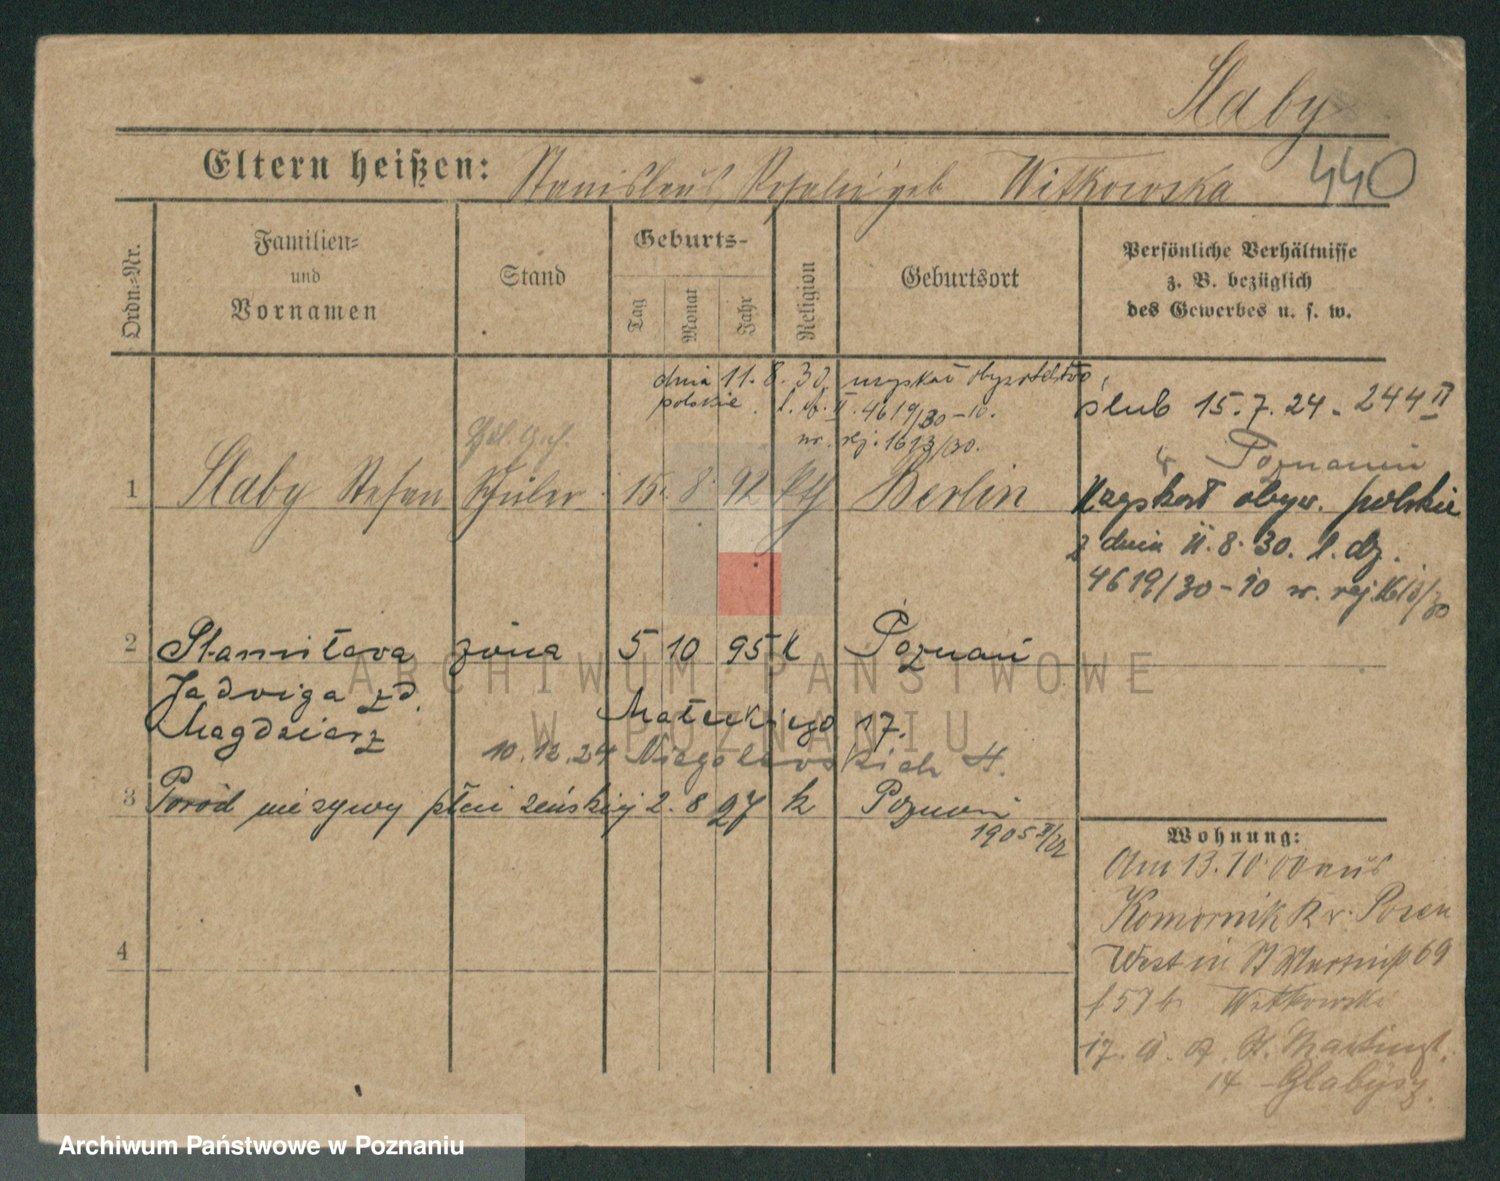 Slaby
Eltern heißen: Stanislaus, Rosalie geb Witkowska
440
Ordn.-Nr.
Familien-
und
Vornamen
Stand
Geburts-
Tag
Monat
Jahr
Religion
Geburtsort
Persönliche Verhältnisse
z. B. bezüglich
des Gewerbes u. s. w.
dnia 11. 8. 30 uzyskał obywatelstwo
polskie l. dz. II. 4619/30-10.
nr. rej. 1613/30.
ślub 15.7.24. 244 II
w Poznaniu
1 Slaby Stefan Schüler 15. 8. 92 kth Berlin
Uzyskał obyw. polskie
z dnia 11.8.30. l. dz.
4619/30-10 nr. rej. 1613/30
2 Stanisława żona 5 10 95 k Poznań
Jadwiga z d.
Magdziarz
Małeckiego 17.
10.12.24 Niegolewskich 4.
3 Poród nieżywy płci żeńskiej 2. 8 27 k Poznań
1905 II/22
4
Wohnung:
Am 13.10.00 aus
Komornik Kr. Posen
West in St Martinstr 69
b Witkowski
St. Martinstr.
14 Glabisz.
ARCHIWUM PAŃSTWOWE
W POZNANIU
Archiwum Państwowe w Poznaniu